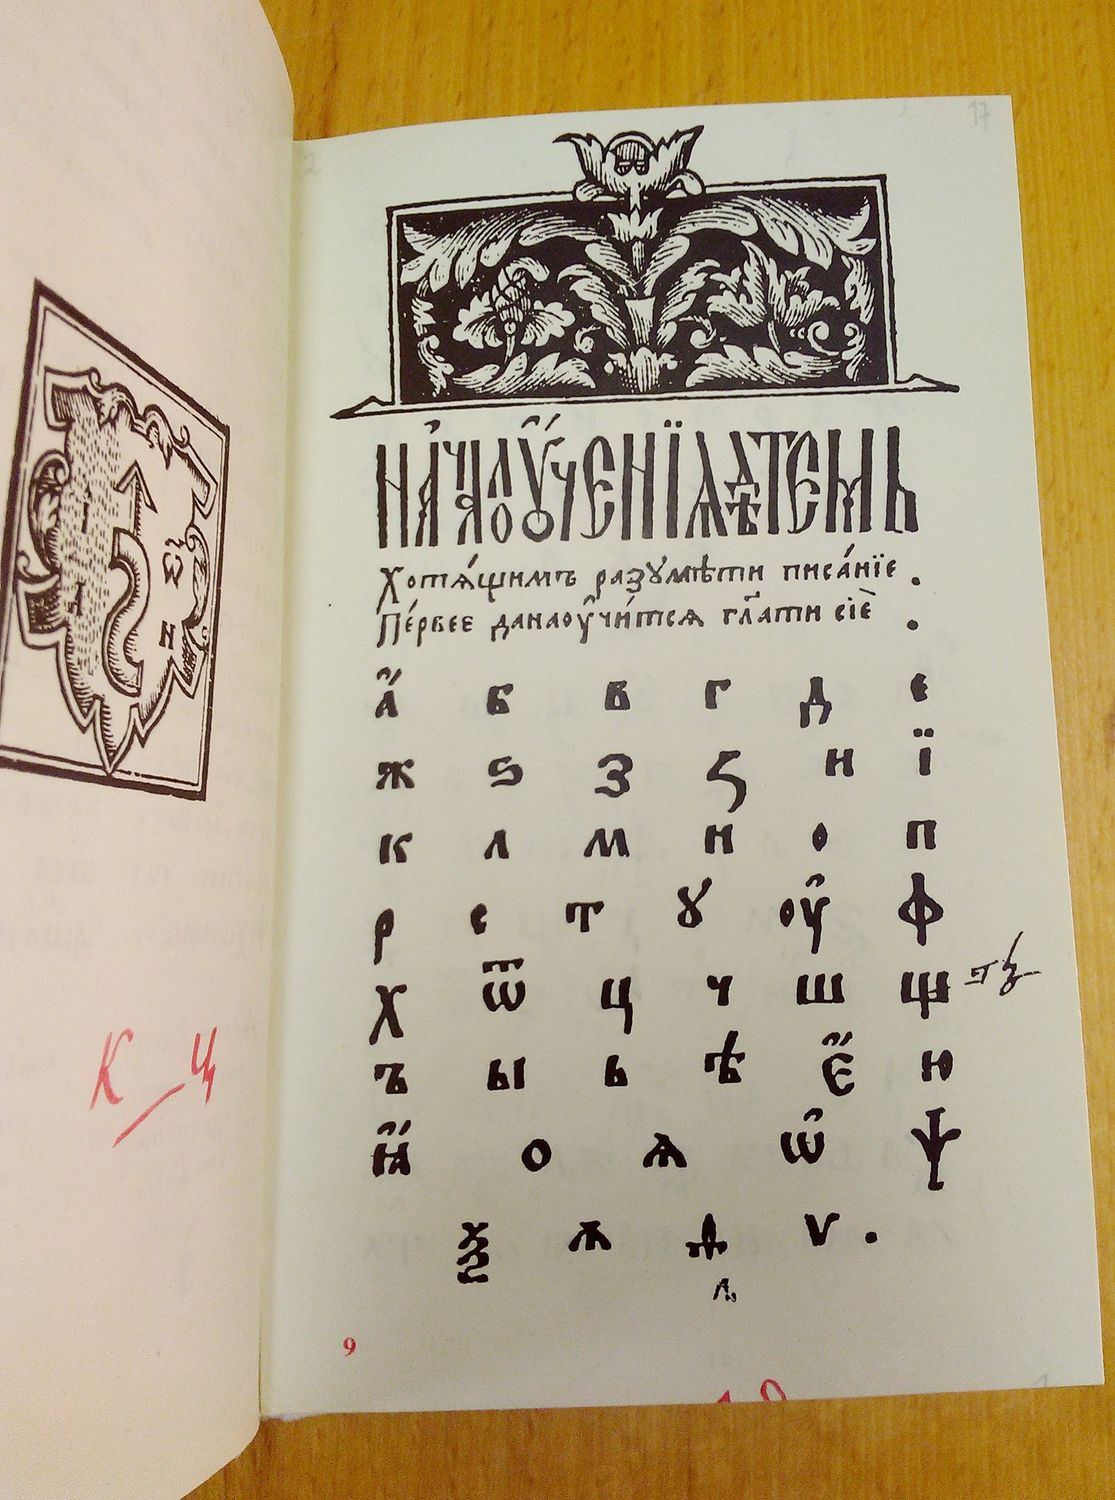 17
НАЧАЛО ОУЧЕНЇѦ ДѢТЕМЪ
Хотѧ́щимъ разꙋмѣти писа́нїе .
Пе́рвее данаоучи́тсѧ гл҃ати сїѐ .
А б в г д е
ж ѕ з ꙁ и ї
к л м н о п
р с т ꙋ оу ф
х ѿ ц ч ш щ
ъ ы ь ѣ є ю
ꙗ о ѧ ѡ ѱ
ѯ ѧ ѳ ѵ .
9
К ц